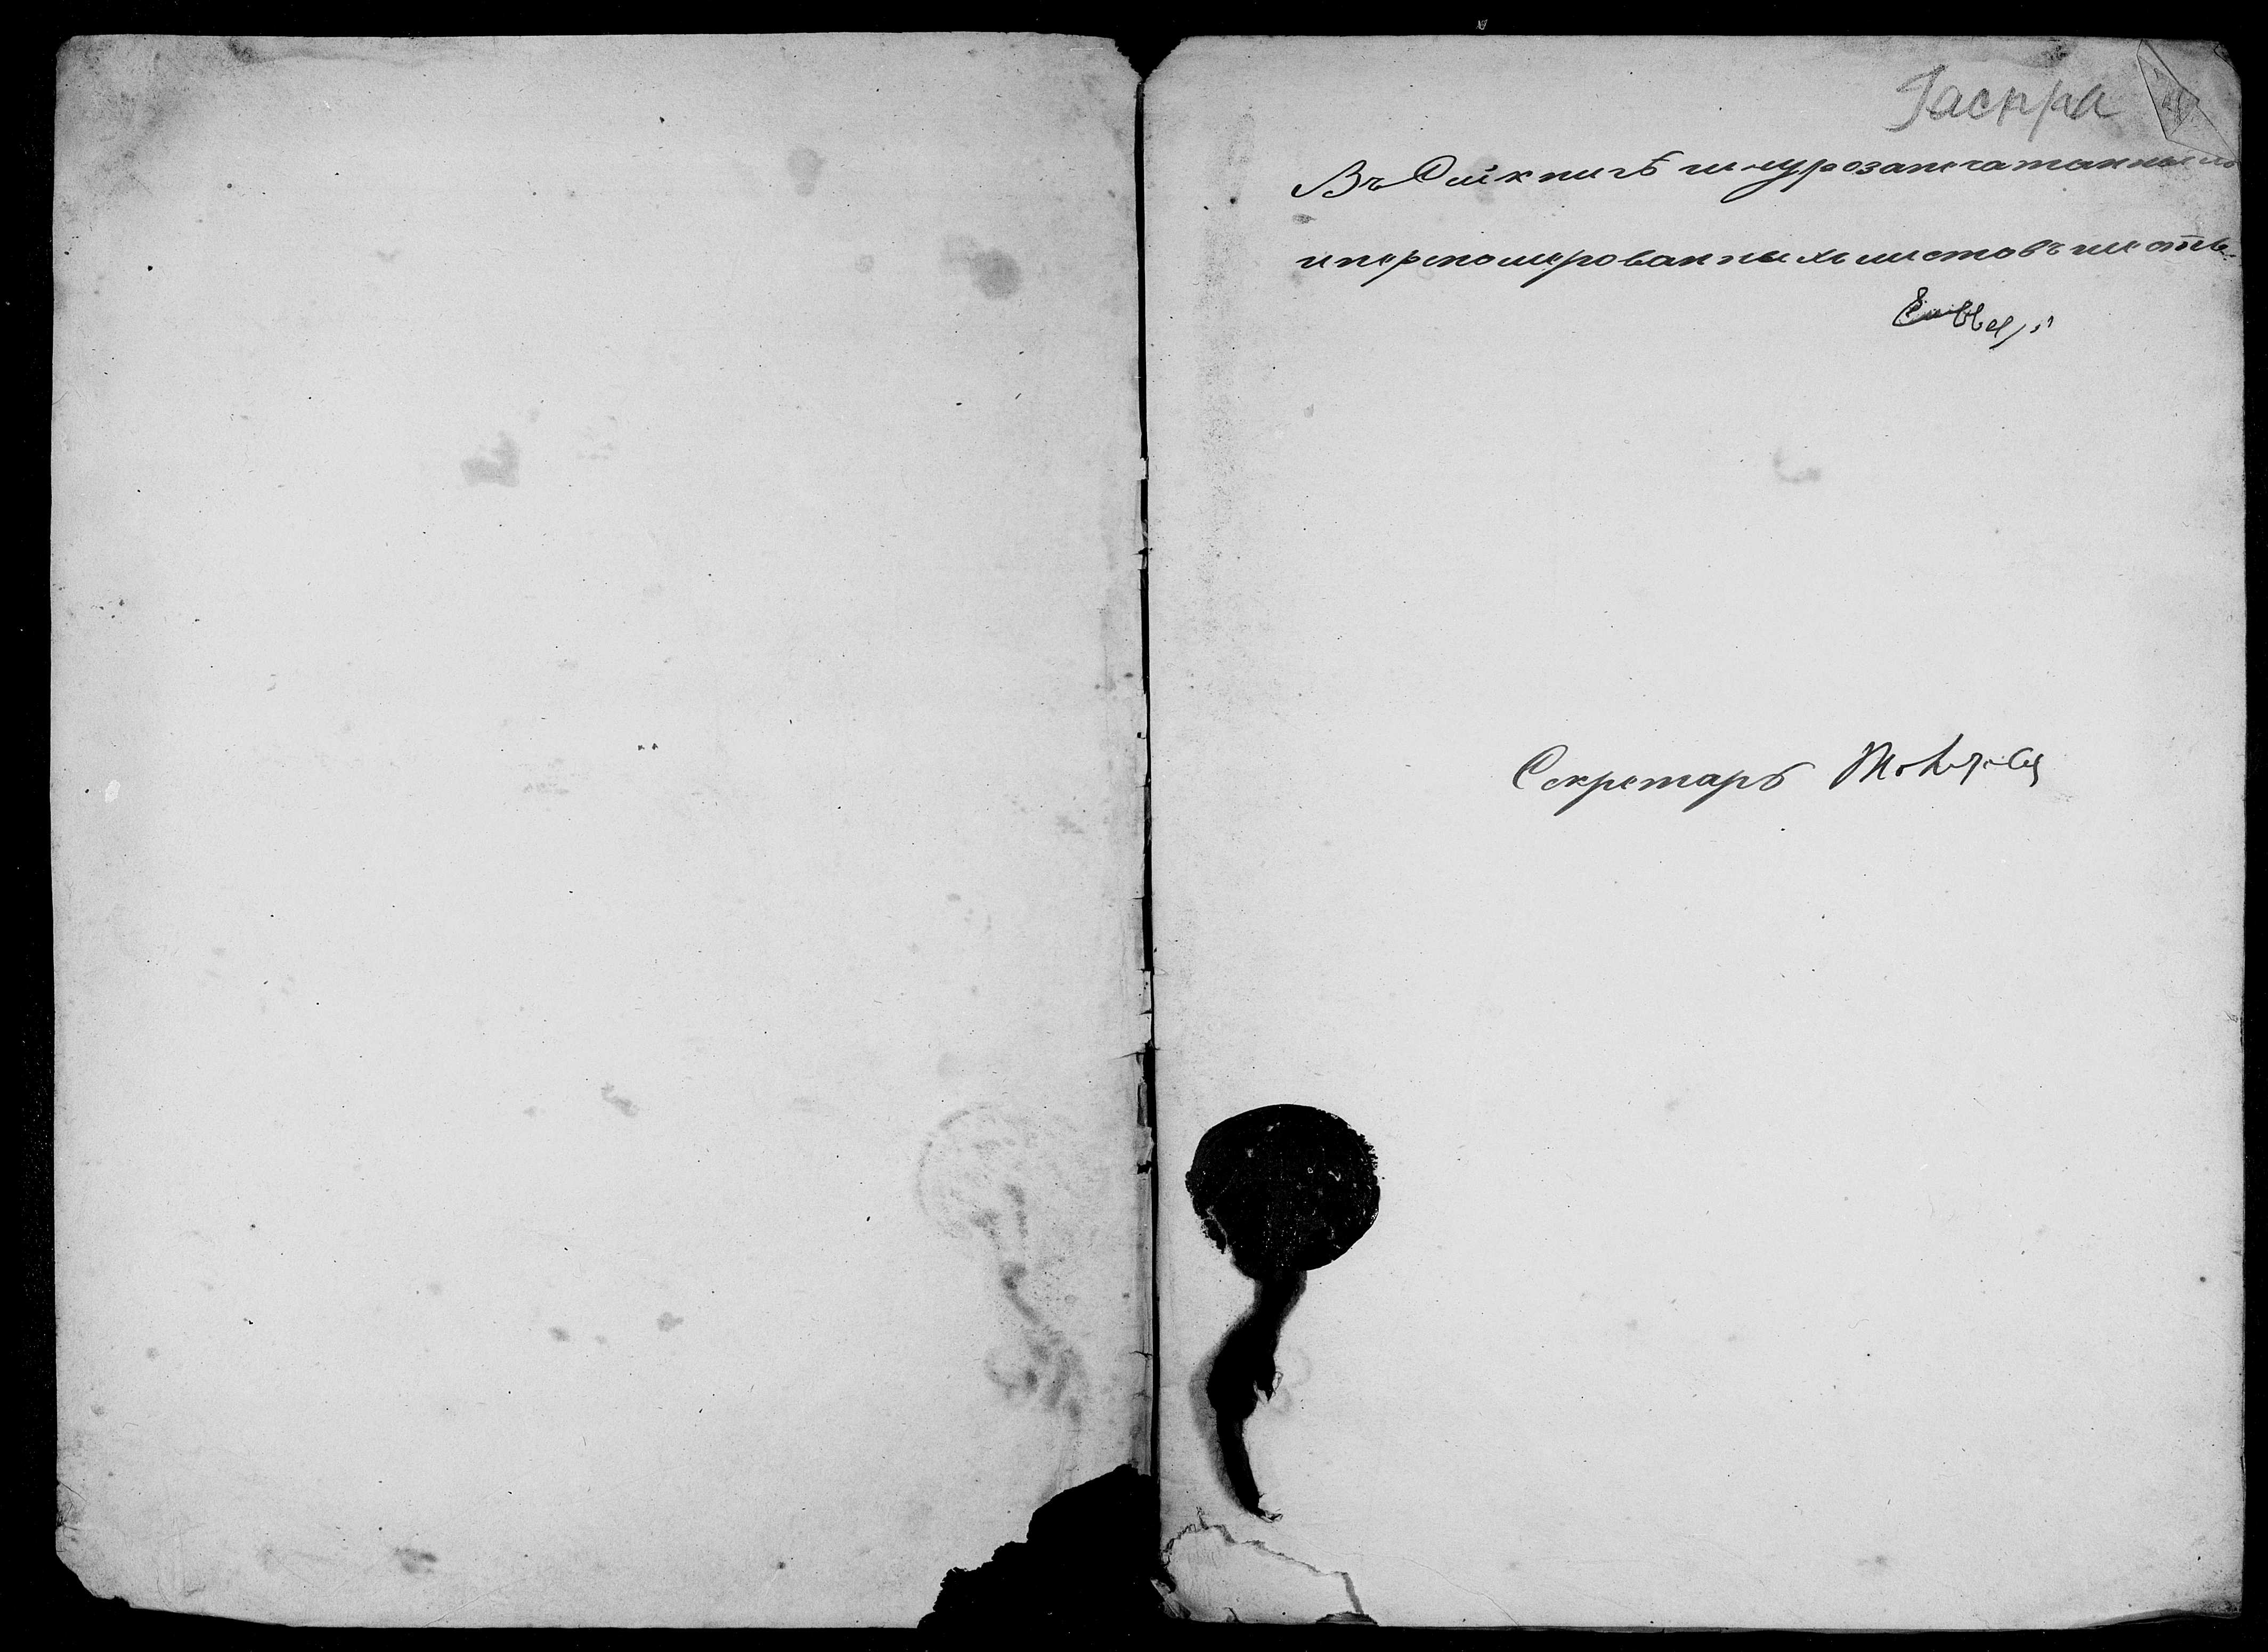 Гаспра
Въ Сей книгѣ шнурозапечатанныхъ
и переномерованныхъ листовъ шесть
Секретарь